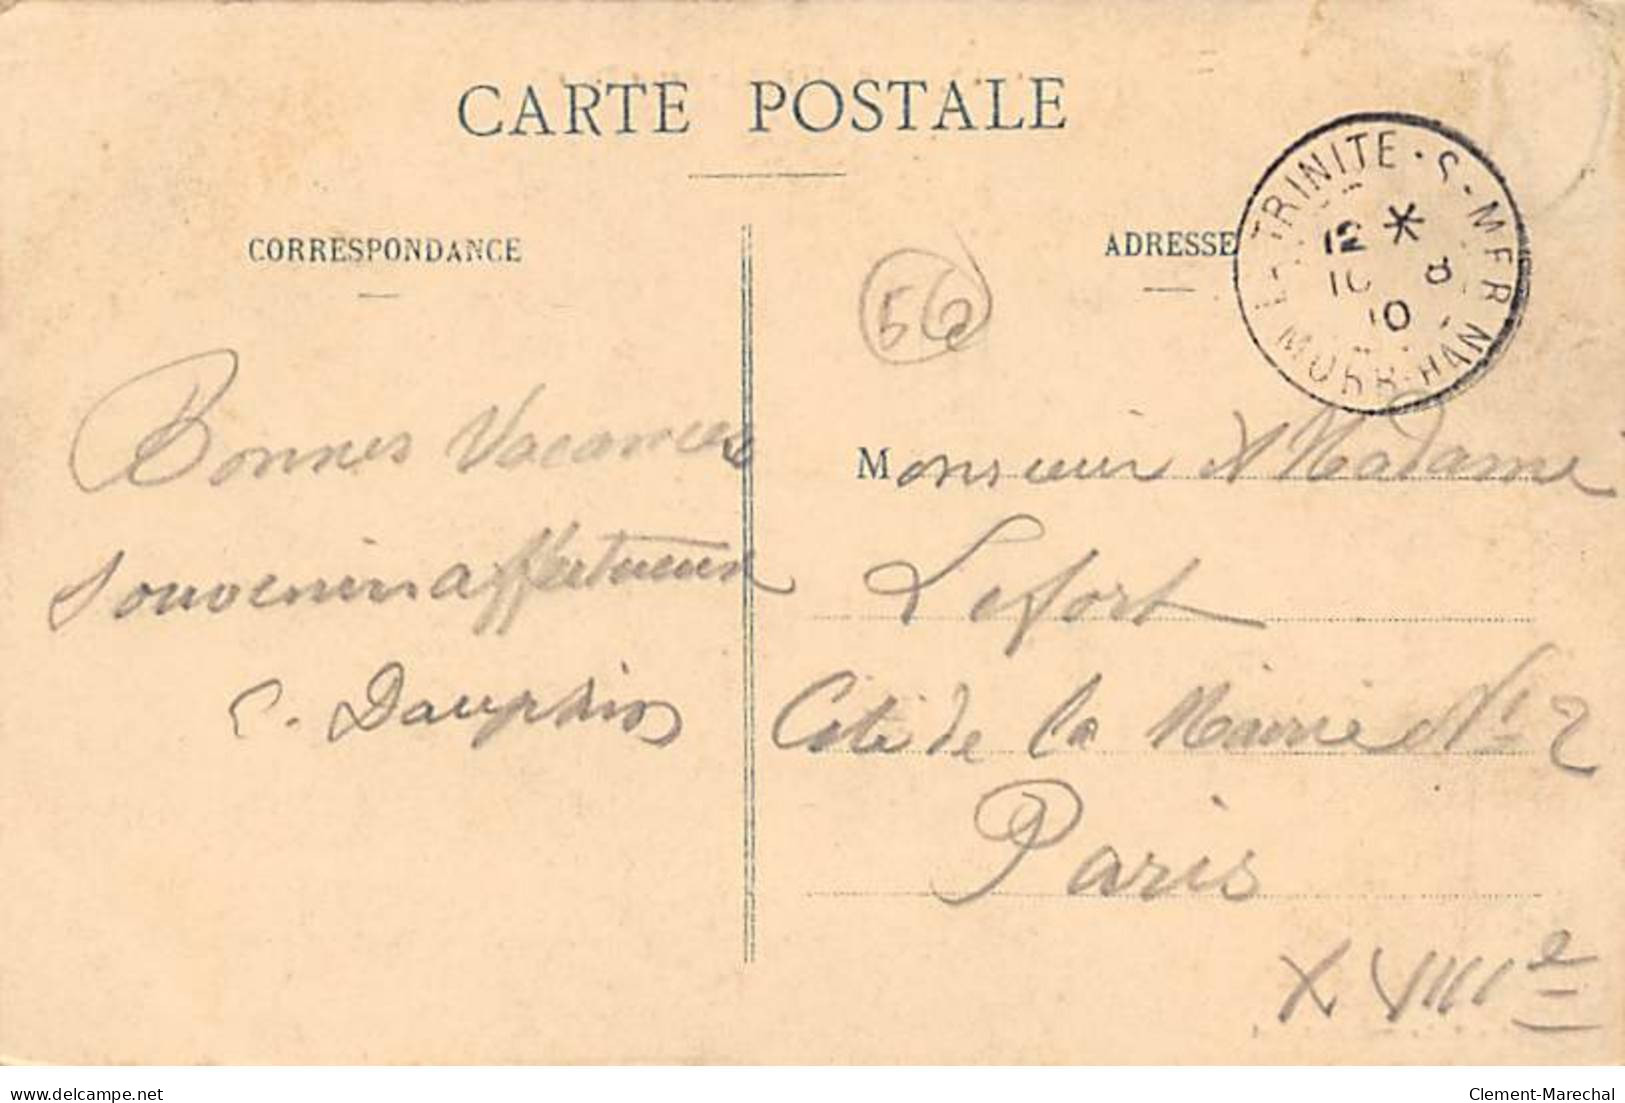 CARTE POSTALE
CORRESPONDANCE
ADRESSE
LA TRINITE-S-MER
12 *
10 8
10
MORBIHAN
56
Bonnes Vacances
Souvenirs affectueux
C. Dauphin
Monsieur et Madame
Lefort
Cité de la Mairie N° 2
Paris
XVIIIe
www.delcampe.net
Clement-Marechal